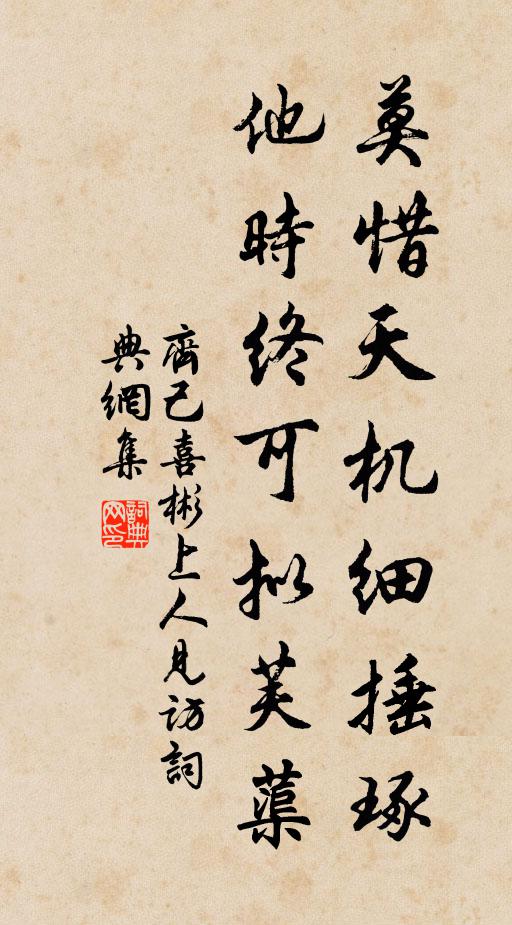 莫惜天机细捶琢
他時终可拟芙蕖
齊己喜彬上人見访詞
典網集
詞典
网印